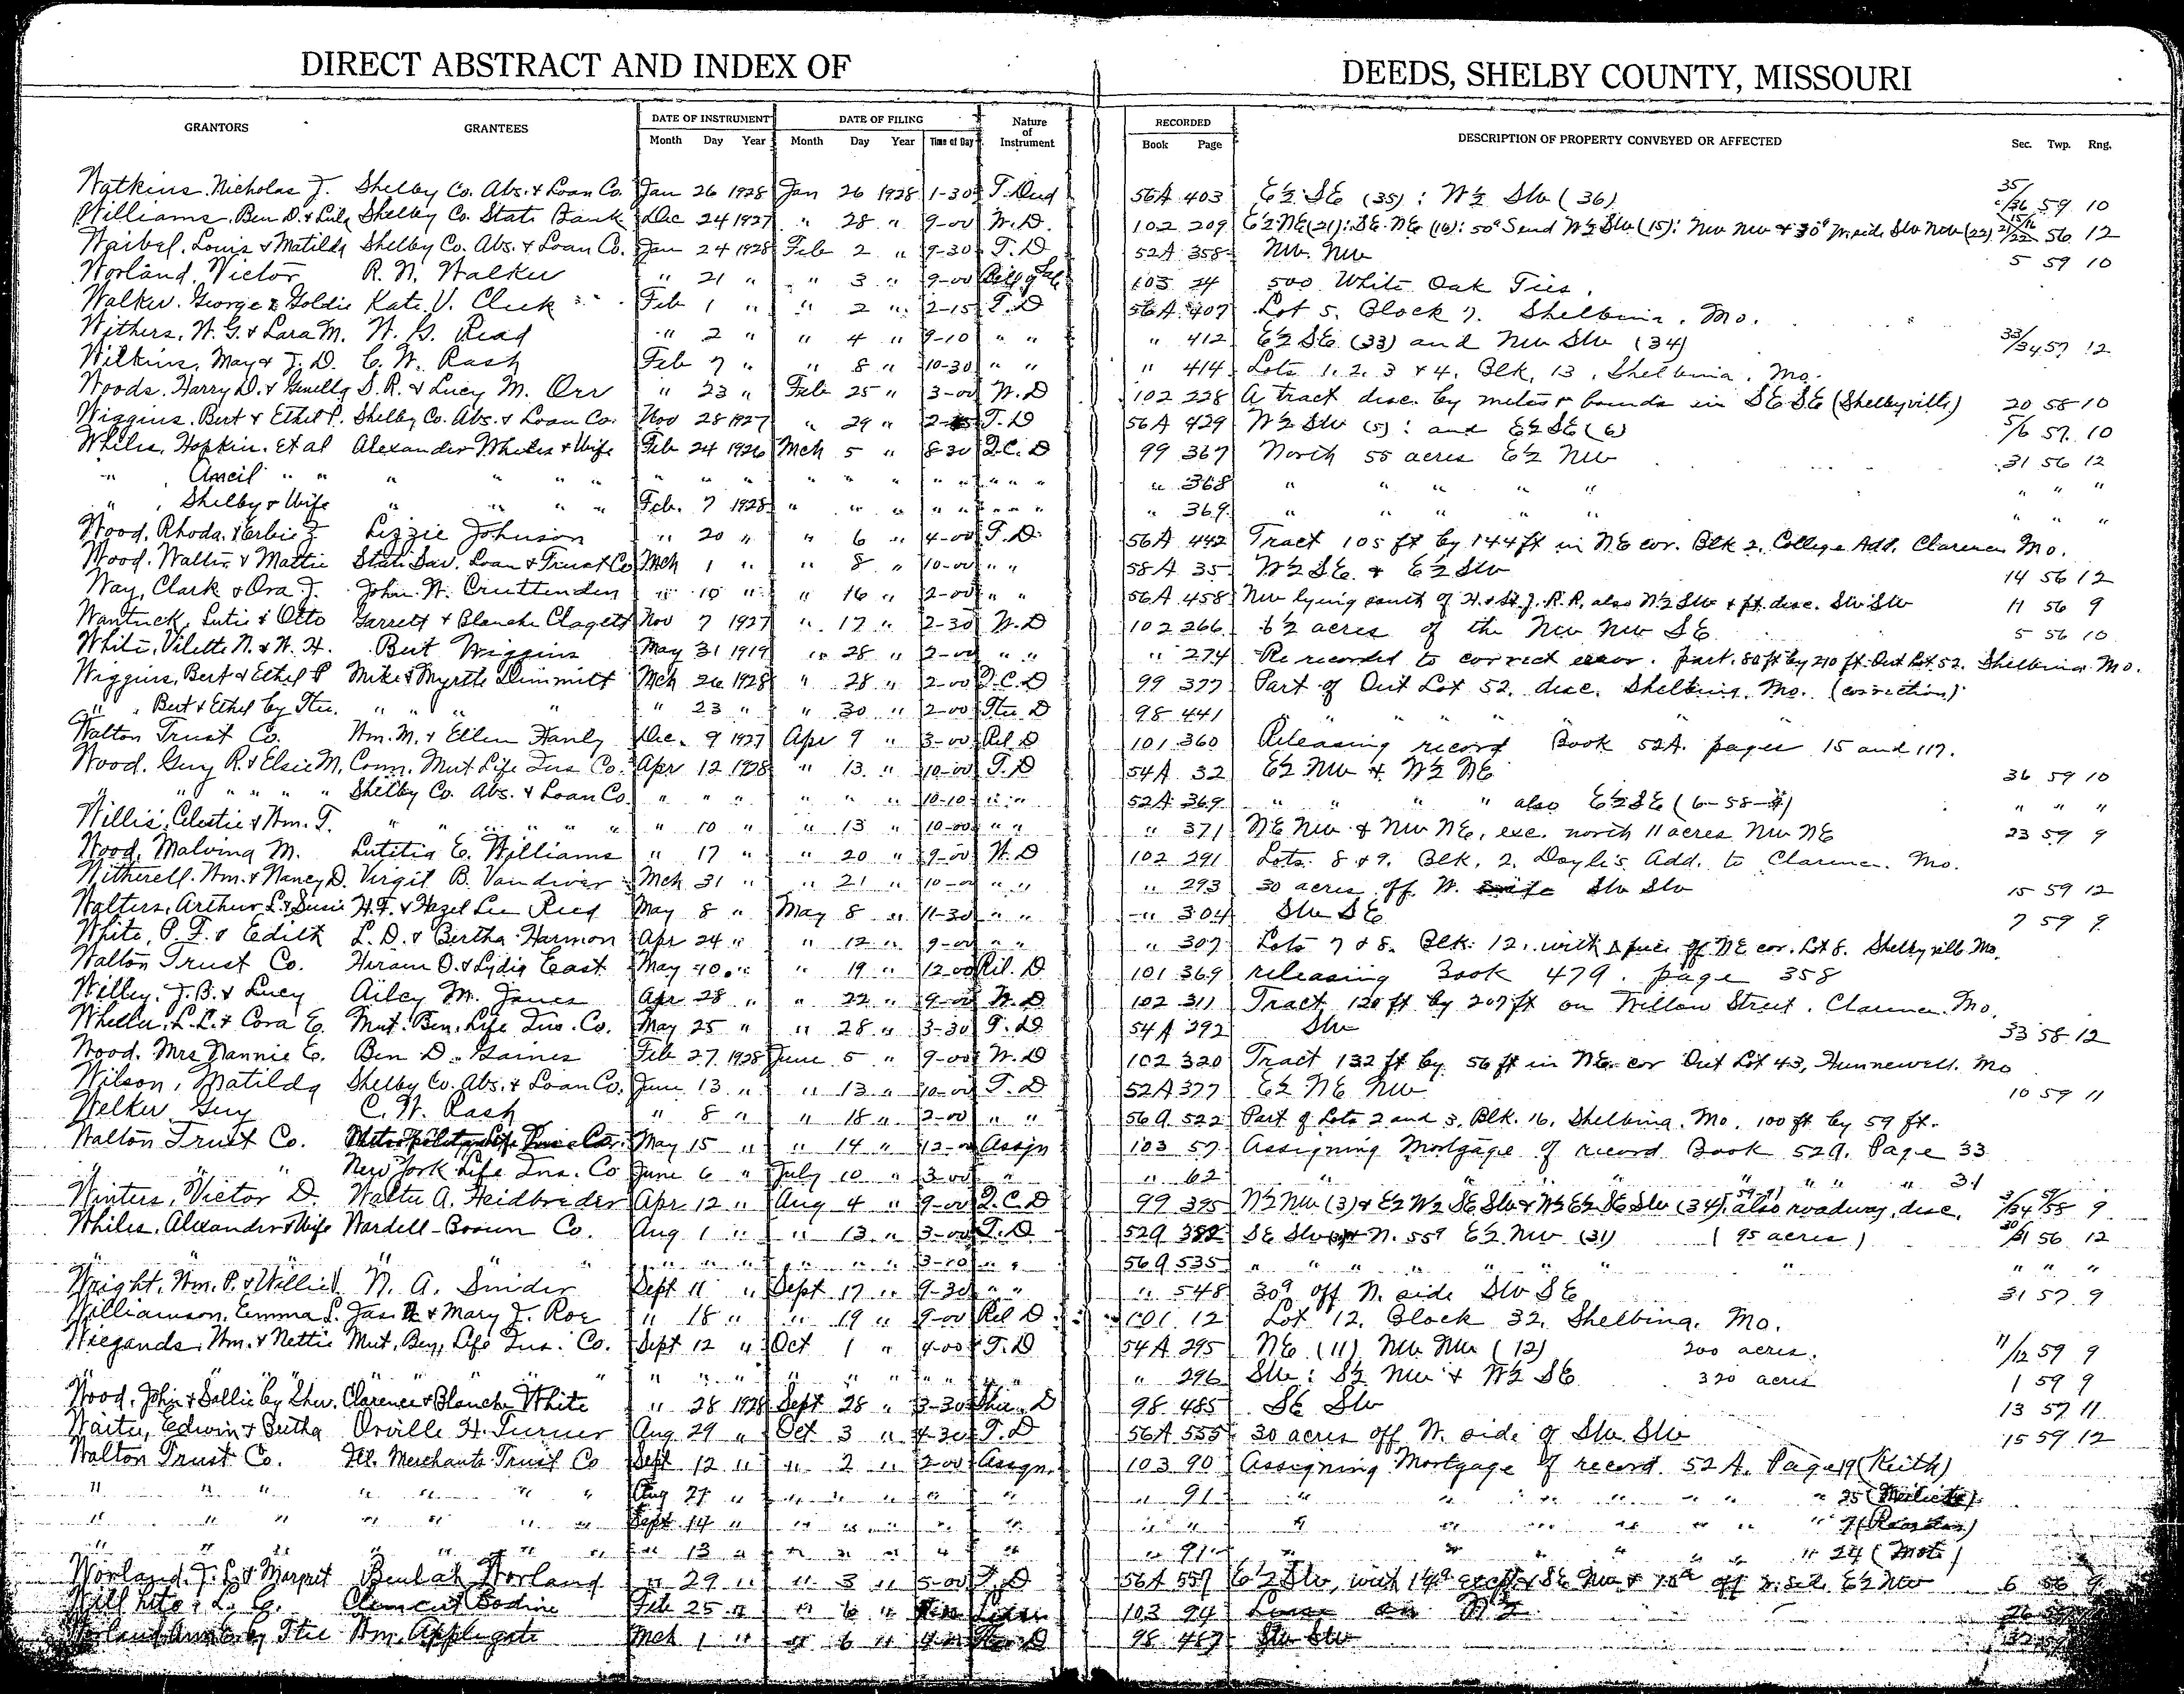 DIRECT ABSTRACT AND INDEX OF DEEDS, SHELBY COUNTY, MISSOURI
GRANTORS GRANTEES DATE OF INSTRUMENT DATE OF FILING Nature of Instrument RECORDED DESCRIPTION OF PROPERTY CONVEYED OR AFFECTED Sec. Twp. Rng.
Month Day Year Month Day Year Time of Day Book Page
Watkins. Nicholas J. Shelby Co. Abs. & Loan Co. Jan 26 1928 Jan 26 1928 1-30 T. Deed 56A 403 E½ SE (35) : W½ SW (36) 35/36 59 10
Williams. Ben D. & Lula Shelby Co. State Bank Dec 24 1927 " 28 " 9-00 W. D. 102 209 E½ NE (21): SE NE (16): 50ª S end W½ SW (15): NW NW & 30ª N side SW NW (22) 56 12
Waibel. Louis & Matilda Shelby Co. Abs. & Loan Co. Jan 24 1928 Feb 2 " 9-30 T. D 52A 358 NW. NW 5 59 10
Worland, Victor R. N. Walker " 21 " " 3 " 9-00 Bill of Sale 103 24 500 White Oak Ties.
Walker. George & Goldie Kate V. Cleek Feb 1 " " 2 " 2-15 T. D 56A 407 Lot 5. Block 7. Shelbina. Mo.
Withers, W. G. & Lara M. W. G. Read " 2 " " 4 " 9-10 " " " 412 E½ SE (33) and NW SW (34) 33/34 57 12
Wilkins, May & J. D. C. W. Rash Feb 7 " " 8 " 10-30 " " " 414 Lots 1. 2. 3 & 4. Blk. 13, Shelbina. Mo.
Woods. Harry D. & S. R. & Lucy M. Orr " 23 " Feb 25 " 3-00 W. D 102 228 A tract desc. by metes & bounds in SE SE (Shelbyville) 20 58 10
Wiggins. Bert & Ethel P. Shelby Co. Abs. & Loan Co. Nov 28 1927 " 29 " T. D 56A 429 W½ SW (5): and E½ SE (6) 5/6 57 10
Whiles, Hopkin. Et al Alexander Whiles & Wife Feb 24 1926 Mch 5 " 8-30 Q.C. D 99 367 North 55 acres E½ NW 31 56 12
" , Ancil " " " " " " " " " " " " " " " " " 368 " " " " " " " "
" , Shelby & Wife " " " " Feb. 7 1928 " " " " " " " " 369 " " " " " " " "
Wood. Rhoda, & Lizzie Johnson " 20 " " 6 " 4-00 T. D. 56A 442 Tract 105 ft by 144 ft in NE cor. Blk 2. College Add. Clarence Mo.
Wood. Walter & Mattie State Sav. Loan & Trust Co Mch 1 " " 8 " 10-00 " " 58A 35 W½ SE. & E½ SW 14 56 12
Way, Clark & Ora J. John W. Cruttenden " 10 " " 16 " 2-00 " " 56A 458 NW lying south of H. & St. J. R.R. also N½ SW & pt. desc. SW SW 11 56 9
Wantuck, Lutie & Otto Garrett & Blanche Clagett Nov 7 1927 " 17 " 2-30 W. D 102 266 6½ acres of the NW NW SE 5 56 10
White, Vilette N. & W. H. Bert Wiggins May 31 1919 " 28 " 2-00 " " " 274 Re recorded to correct error. part. 80 ft by 210 ft Out Lot 52. Shelbina Mo.
Wiggins, Bert & Ethel P Mike & Myrtle Dimmitt Mch 26 1928 " 28 " 2-00 Q. C. D 99 377 Part of Out Lot 52. desc. Shelbina. Mo. (correction)
" , Bert & Ethel by Tte. " " " " " 23 " " 30 " 2-00 Tte D 98 441 " " " " " "
Walton Trust Co. Wm. M. & Ellen Hanly Dec. 9 1927 Apr 9 " 3-00 Rel. D 101 360 Releasing record Book 52A. pages 15 and 117.
Wood. Guy R. & Elsie M, Conn. Mut Life Ins Co. Apr 12 1928 " 13 " 10-00 T. D 54A 32 E½ NW & W½ NE 36 59 10
" " " " " Shelby Co. Abs. & Loan Co. " " " " " " 10-10 " " 52A 369 " " " " also E½ SE (6-58-9) " " "
Willis, Celestie & Wm. T. " " " " " " 10 " " 13 " 10-00 " " " 371 NE NW & NW NE, exc. north 11 acres NW NE 23 59 9
Wood, Malvina M. Lutitia E. Williams " 17 " " 20 " 9-00 W. D 102 291 Lots 8 & 9. Blk. 2. Doyle's Add. to Clarence. Mo.
Witherell. Wm. & Nancy D. Virgil B. Vandiver Mch 31 " " 21 " 10-00 " " " 293 30 acres off N. SW SW 15 59 12
Walters, Arthur L. & Susie H. F. & Hazel Lee Reed May 8 " May 8 " 11-30 " " " 304 SW SE 7 59 9
White, P. F. & Edith L. D. & Bertha Harmon Apr 24 " " 12 " 9-00 " " " 307 Lots 7 & 8. Blk. 12. with piece off NE cor. Lot 8. Shelbyville Mo.
Walton Trust Co. Hiram O. & Lydia East May 10 " " 19 " 12-00 Rel. D. 101 369 releasing Book 479. page 358
Willey. J. B. & Lucy Ailey M. Jones Apr 28 " " 22 " 9-00 W. D 102 311 Tract 120 ft by 207 ft on Willow Street. Clarence Mo.
Wheeler, L. L. & Cora E. Mut. Ben. Life Ins. Co. May 25 " " 28 " 3-30 T. D 54A 292 SW 33 58 12
Wood. Mrs Nannie E. Ben D. Gaines Feb 27 1928 June 5 " 9-00 W. D 102 320 Tract 132 ft by 56 ft in NE cor Out Lot 43, Hunnewell. Mo
Wilson, Matilda Shelby Co. Abs. & Loan Co. June 13 " " 13 " 10-00 T. D 52A 377 E½ NE NW 10 59 11
Welker Guy C. W. Rash " 8 " " 18 " 2-00 " " 56a 522 Part of Lots 2 and 3, Blk. 16. Shelbina. Mo. 100 ft by 59 ft.
Walton Trust Co. May 15 " " 14 " 12-00 Assgn 103 57 Assigning Mortgage of record Book 52a. Page 33
" " " New York Life Ins. Co June 6 " July 10 " 3-00 " " 62 " " " " " " 31
Winters, Victor D. Walter A. Heidbreder Apr 12 " Aug 4 " 9-00 Q. C. D 99 395 N½ NW (3) & E½ W½ SE SW & W½ E½ SE SW (34) also roadway, desc. 3/34 59/58 9
Whiles, Alexander & Wife Wardell-Brown Co. Aug 1 " " 13 " 3-00 T. D 52a 382 SE SW & N. 55ª E½ NW (31) (95 acres) 30/31 56 12
" " " " " " " " " " 3-10 " " 56a 535 " " " " " " " " " "
Wright, Wm. P. & Willie N. A. Snider Sept 11 " Sept 17 " 9-30 " " " 548 30ª off N. side SW SE 31 57 9
Williamson, Emma L. Jas. R & Mary J. Roe " 18 " " 19 " 9-00 Rel D 101 12 Lot 12. Block 32. Shelbina. Mo.
Wiegands. Wm. & Nettie Mut. Ben. Life Ins. Co. Sept 12 " Oct 1 " 4-00 T. D 54A 295 NE (11) NW NW (12) 200 acres. 11/12 59 9
" " " " " " " " " " " " " " " 296 SW: S½ NW & W½ SE 320 acres 1 59 9
Wood, John & Sallie by Sher. Clarence & Blanche White " 28 1928 Sept 28 " 3-30 Sher. D 98 485 SE SW 13 57 11
Waite, Edwin & Bertha Orville H. Turner Aug 29 " Oct 3 " 4-30 T. D 56A 555 30 acres off N. side of SW SW 15 59 12
Walton Trust Co. Ill. Merchants Trust Co Sept 12 " " 2 " 2-00 Assgn. 103 90 Assigning Mortgage of record. 52A. Page 19 (Keith)
" " " " " " " Aug 27 " " " " " " " 91 " " " " " " " 25
" " " " " " " Sept 14 " " " " " " " " " " " " " " " 7
" " " " " " " " 13 " " " " " " " 91 " " " " " 24
Worland. J. L. & Margret Beulah Worland " 29 " " 3 " 5-00 T. D 56A 557 E½ SW, with 14ª except SE NW & off E½ NW 6 56 9
Willhite, L. C. Clement Bodine Feb 25 " " 6 " 103 94
by Tte Wm. Applegate Mch 1 " " 6 " D 98 487 SW SW